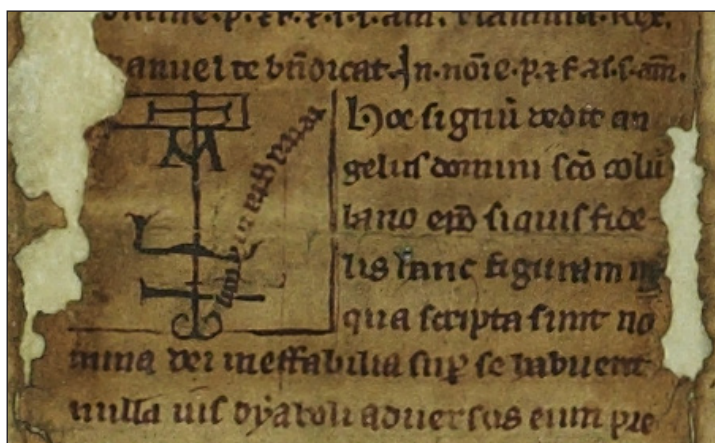 anuel te bn̄dicat. In. noīe. p. ⁊ f. ⁊ s. s. am̄.
hoc signū dedit an
gelus domini sc̄o colū
bano ep̄o si quis fide
lis hanc figuram in
qua scripta sunt no
mina dei ineffabilia suꝑ se habuerit
nulla uis dyaboli aduersus eum pre